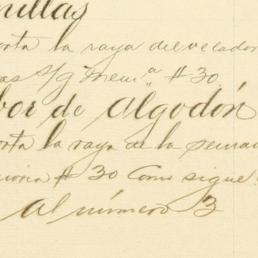 nillas
orta la raya del velador
as S/g Mem.a # 30
bor de algodón
orta la raya de la semana
moria # 30 Como sigue
Al número 3